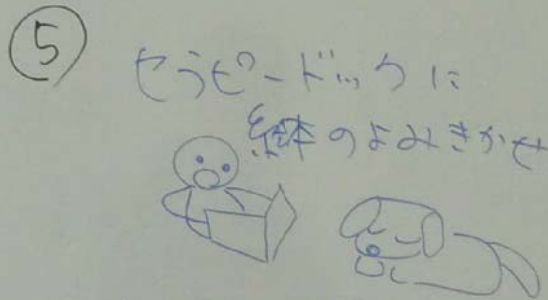 ⑤
セラピードックに
絵本のよみきかせ